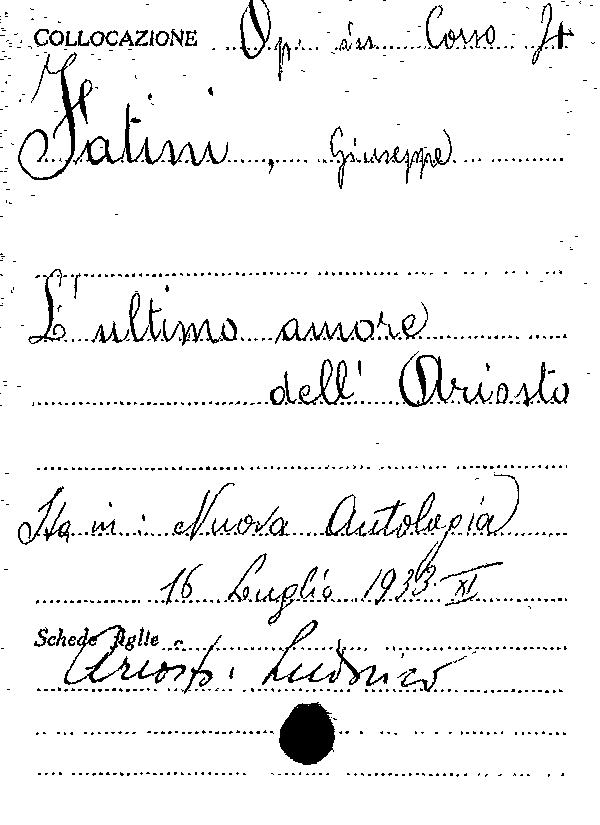 COLLOCAZIONE Op. in Corso 74
Fatini, Giuseppe
L'ultimo amore
dell' Ariosto
Sta in: Nuova Antologia
16 Luglio 1933 XI
Schede figlie
Ariosto Ludovico